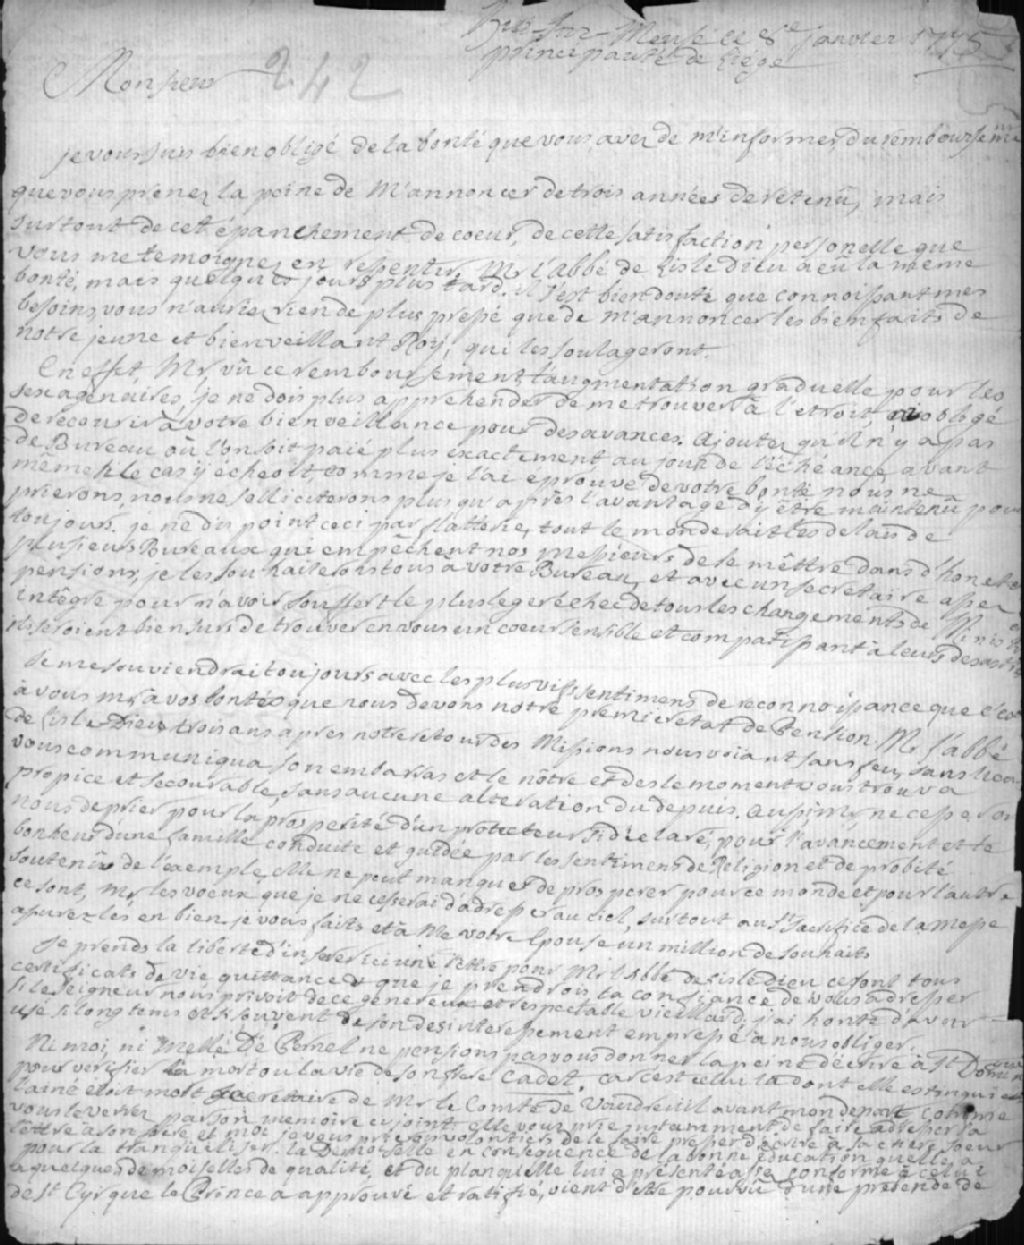 Huy sur Meuse ce 8e janvier 1775
principauté de Liége
Monsieur 242
je vous suis bien obligé de la bonté que vous avez de m'informer du remboursemt
que vous prenez la peine de m'annoncer de trois années de retenu, mais
surtout de cet épanchement de coeur, de cette satisfaction personelle que
vous me temoignez en ressentir. Mr l'abbé de Lisle Dieu a eu la même
bonté, mais quelques jours plus tard. il s'est bien douté que connoissant mes
besoins, vous n'auriez rien de plus pressé que de m'annoncer les bienfaits de
notre jeune et bienveillant Roy, qui les soulageront.
En effet, Mr, vû ce remboursement, l'augmentation graduelle pour les
sexagenaires, je ne dois plus apprehender de me trouver à l'etroit, ou obligé
de recourir à votre bienveillance pour des avances. Ajoutez qu'il n'y a pas
de Bureau où l'on soit paié plus exactement au jour de l'échéance, avant
même le cas y écheoit, comme je l'ai éprouvé de votre bonté nous ne
prierons, nous ne solliciterons plus qu'après l'avantage d'y être maintenu pour
toujours. je ne dis point ceci par flatterie, tout le monde sait les delais de
plusieurs Bureaux qui empêchent nos Messieurs de se mêttre dans d'honetes
pensions, je les souhaiterois tous à votre Bureau, et avec un secretaire assez
intégre pour n'avoir souffert le plus leger échec de tous les changements de Ministre
ils seroient bien surs de trouver en vous un coeur sensible et compatissant à leurs desastres
Je me souviendrai toujours avec les plus vifs sentimens de reconnoissance que c'est
à vous Mr, a vos bontés que nous devons notre premier etat de Pension. Mr l'abbé
de Lisle Dieu, trois ans apres notre retour des Missions nous voiant sans feu, sans lieu
vous communiqua son embarras et le nôtre et des le moment vous trouva
propice et secourable, sans aucune alteration du depuis. Aussi, Mr, ne cesserons
nous de prier pour la prosperité d'un protecteur si declaré, pour l'avancement et le
bonheur d'une famille conduite et guidée par les sentimens de Religion et de probité
soutenus de l'exemple, elle ne peut manquer de prosperer pour ce monde et pour l'autre
ce sont, Mr, les voeux que je ne cesserai d'adresser au ciel, surtout au St Sacrifice de la Messe
assurez les en bien. je vous faits et à Me votre Epouse un million de souhaits
Je prends la liberté d'inserer ici une lettre pour Mr l'abbé de Lisle Dieu ce sont tous
certificats de vie quittances que je prendrois la confiance de vous adresser
si le Seigneur nous privoit de ce genereux et respectable vieillard; j'ai honte d'avoir
usé si long tems et si souvent de son desinteressement empressé a nous obliger.
Ni moi, ni Melle De Pernel ne pensions pas vous donner la peine d'écrire à St Domingue
pour verifier la mort ou la vie de son frere Cadet, car c'est celui la dont elle est inquiete
l'ainé étoit mort secretaire de Mr le Comte de Vaudreuil avant mon depart, comme
vous le verrez par son memoire ci joint. elle vous prie instamment de faire adresser sa
lettre à son frere et moi je vous prierois volontiers de le faire presser d'écrire à sa chere soeur
pour la tranquiliser. la Demoiselle en consequence de la bonne Education qu'elle a
a quelques demoiselles de qualité, et du plan qu'elle lui a presenté assez conforme à celui
de St Cyr que le Prince a approuvé et ratifié, vient d'être pourvue d'une prebende de